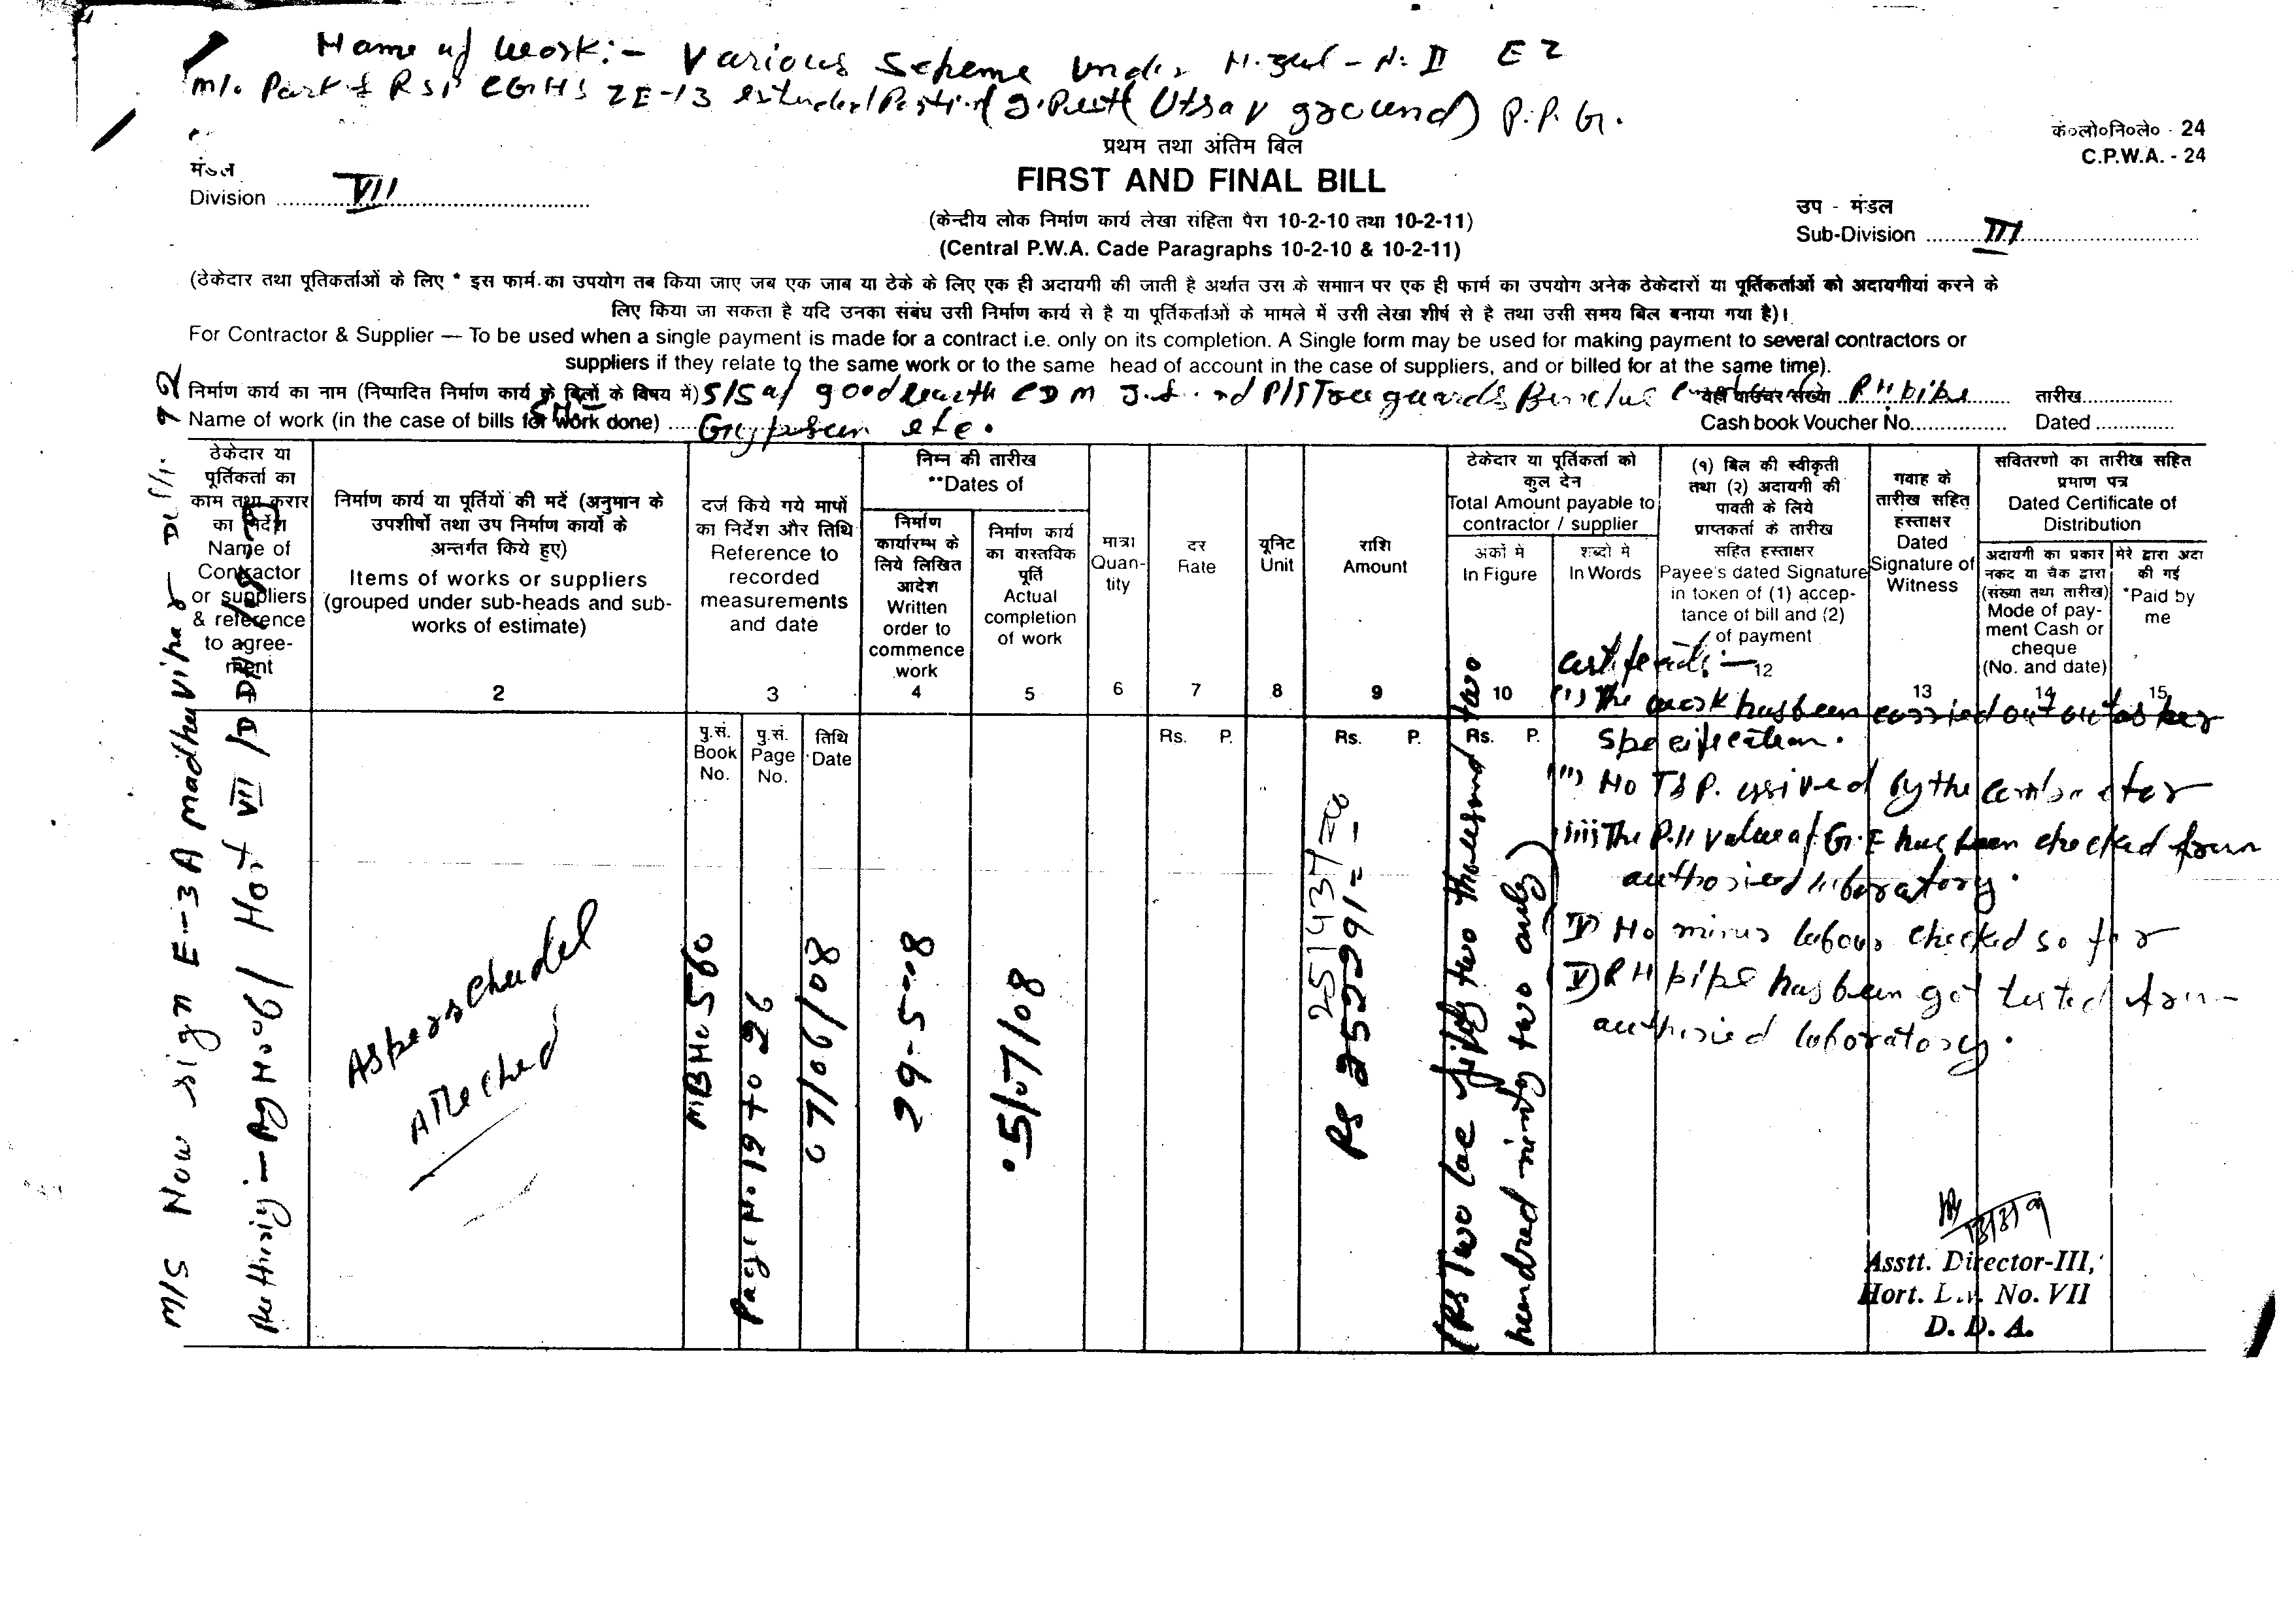 Name of work:- Various Scheme under N. Zul - No II E Z
M/o Part & RSP CGHS ZE-13 extended (Utsav ground) P.P.G.
प्रथम तथा अंतिम बिल
कें०लो०नि०ले० - 24
C.P.W.A. - 24
मंडल
Division VII
FIRST AND FINAL BILL
(केन्द्रीय लोक निर्माण कार्य लेखा संहिता पेरा 10-2-10 तथा 10-2-11)
(Central P.W.A. Cade Paragraphs 10-2-10 & 10-2-11)
उप - मंडल
Sub-Division III
(ठेकेदार तथा पूतिकर्ताओं के लिए * इस फार्म का उपयोग तब किया जाए जब एक जाब या ठेके के लिए एक ही अदायगी की जाती है अर्थात उस के समाान पर एक ही फार्म का उपयोग अनेक ठेकेदारों या पूर्तिकर्ताओं को अदायगीयां करने के
लिए किया जा सकता है यदि उनका संबंध उसी निर्माण कार्य से है या पूर्तिकर्ताओं के मामले में उसी लेखा शीर्ष से है तथा उसी समय बिल बनाया गया है)।
For Contractor & Supplier — To be used when a single payment is made for a contract i.e. only on its completion. A Single form may be used for making payment to several contractors or
suppliers if they relate to the same work or to the same head of account in the case of suppliers, and or billed for at the same time).
निर्माण कार्य का नाम (निष्पादित निर्माण कार्य के बिलों के विषय में) S/S of good earth CDM and P/F Tree guards RH pipe
रोकड़ वाउचर संख्या
तारीख
Name of work (in the case of bills for work done) Gypsum etc.
Cash book Voucher No.
Dated
ठेकेदार या
पूर्तिकर्ता का
काम तथा करार
का निर्देश
Name of
Contractor
or suppliers
& reference
to agree-
ment
निर्माण कार्य या पूर्तियों की मदें (अनुमान के
उपशीर्षों तथा उप निर्माण कार्यो के
अन्तर्गत किये हुए)
Items of works or suppliers
(grouped under sub-heads and sub-
works of estimate)
2
दर्ज किये गये मापों
का निर्देश और तिथि
Reference to
recorded
measurements
and date
3
निम्न की तारीख
**Dates of
निर्माण
कार्यारम्भ के
लिये लिखित
आदेश
Written
order to
commence
work
4
निर्माण कार्य
का वास्तविक
पूर्ति
Actual
completion
of work
5
मात्रा
Quan-
tity
6
दर
Rate
7
यूनिट
Unit
8
राशि
Amount
9
ठेकेदार या पूर्तिकर्ता को
कुल देन
Total Amount payable to
contractor / supplier
अकों में
In Figure
शब्दो मे
In Words
10
(१) बिल की स्वीकृती
तथा (२) अदायगी की
पावती के लिये
प्राप्तकर्ता के तारीख
सहित हस्ताक्षर
Payee's dated Signature
in token of (1) accep-
tance of bill and (2)
of payment
12
गवाह के
तारीख सहित
हस्ताक्षर
Dated
Signature of
Witness
13
सवितरणो का तारीख सहित
प्रमाण पत्र
Dated Certificate of
Distribution
अदायगी का प्रकार
नकद या चैक द्वारा
(संख्या तथा तारीख)
Mode of pay-
ment Cash or
cheque
(No. and date)
14
मेरे द्वारा अदा
की गई
*Paid by
me
15
पु.सं.
Book
No.
पृ.सं.
Page
No.
तिथि
Date
Rs. P.
Rs. P.
Rs. P.
M/S New sign E-3A madhu Vihar Delhi
Authority - Ag No 06/Hort VII/DDA
As per schedel
Atteched
MB No 560
Page No 19 to 26
07/06/08
29-5-08
05/07/08
251437=00
Rs 252291=-
(Rs Two lac fifty two thousand two
hundred ninty two only)
Certificate:-
(i) The work has been carried out as per
Specification.
(ii) No T&P. issived by the contractor
(iii) The P.H value of G.E has been checked from
authorised laboratory.
IV) No minus labour checked so far
V) RH pipe has been got tested from
authorised laboratory.
Asstt. Director-III,
Hort. Div. No. VII
D. D. A.